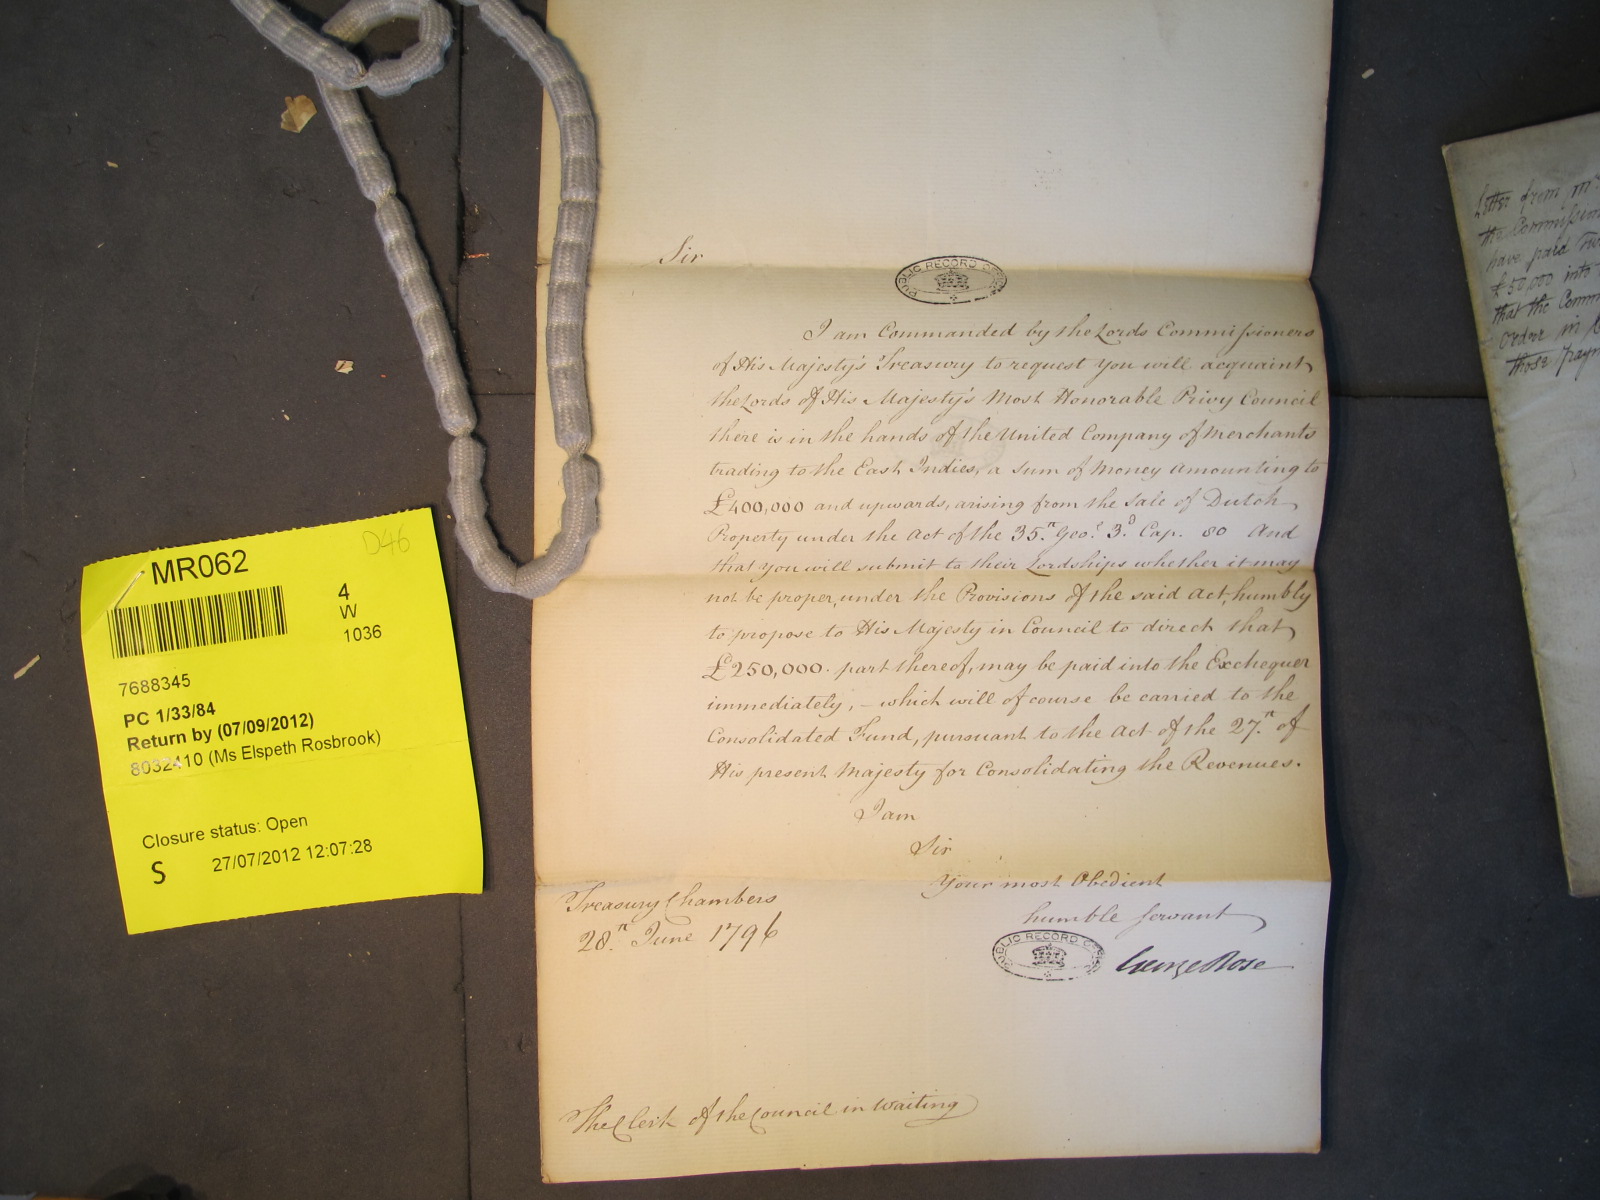 Sir
PUBLIC RECORD OFFICE
I am Commanded by the Lords Commissioners
of His Majesty's Treasury to request you will acquaint
the Lords of His Majesty's Most Honorable Privy Council
there is in the hands of the United Company of Merchants
trading to the East Indies, a Sum of Money amounting to
£400,000 and upwards, arising from the Sale of Dutch
Property under the Act of the 35.th Geo: 3.d Cap. 80 And
that you will submit to their Lordships whether it may
not be proper, under the Provisions of the said Act, humbly
to propose to His Majesty in Council to direct that
£250,000. part thereof, may be paid into the Exchequer
immediately, – which will of course be carried to the
Consolidated Fund, pursuant to the Act of the 27.th of
His present Majesty for Consolidating the Revenues.
I am
Sir
Your most Obedient
humble Servant
George Rose
PUBLIC RECORD OFFICE
Treasury Chambers
28.th June 1796
The Clerk of the Council in Waiting
D46
MR062
4
W
1036
7688345
PC 1/33/84
Return by (07/09/2012)
8032410 (Ms Elspeth Rosbrook)
Closure status: Open
S 27/07/2012 12:07:28
Letter from Mr
the Commission
have paid
£50,000 into
that the Comm
Order in
those paym